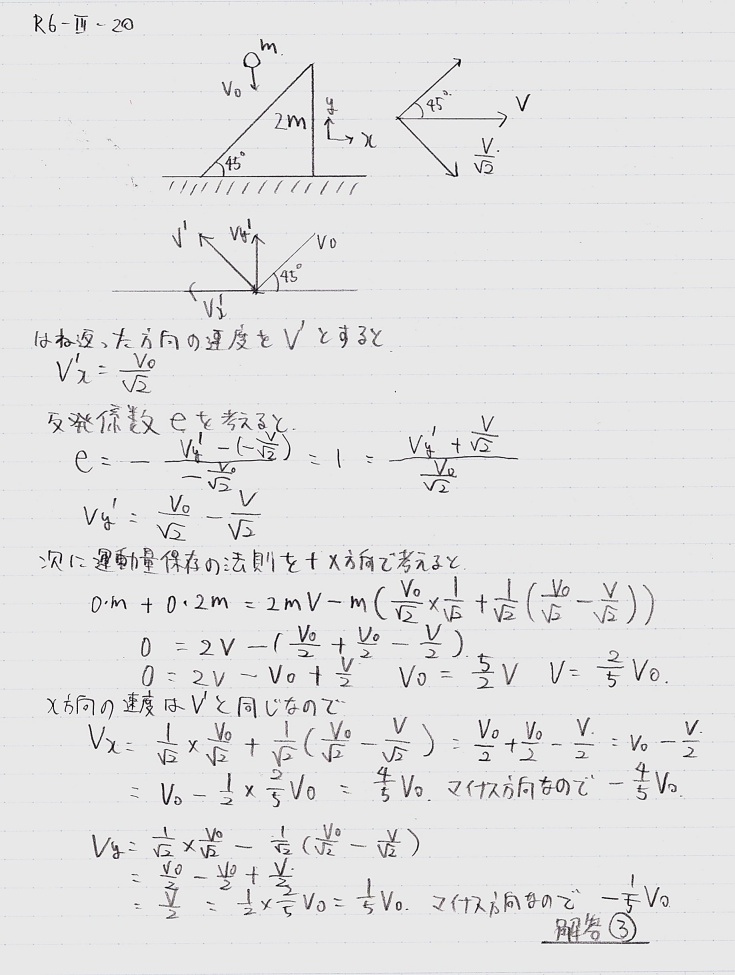 R6-Ⅲ-20
m
V₀
2m
45°
y
x
45°
V
V/√2
V'
Vy'
V₀
45°
Vx'
はね返った方向の速度をV'とすると
V'x = V₀/√2
反発係数eを考えると.
e = - (Vy' - (-V/√2))/(-V₀/√2) = 1 = (Vy' + V/√2)/(V₀/√2)
Vy' = V₀/√2 - V/√2
次に運動量保存の法則を+x方向で考えると
0·m + 0·2m = 2mV - m(V₀/√2 × 1/√2 + 1/√2 (V₀/√2 - V/√2))
0 = 2V - (V₀/2 + V₀/2 - V/2)
0 = 2V - V₀ + V/2 V₀ = 5/2 V V = 2/5 V₀.
x方向の速度はV'と同じなので
Vx = 1/√2 × V₀/√2 + 1/√2 (V₀/√2 - V/√2) = V₀/2 + V₀/2 - V/2 = V₀ - V/2
= V₀ - 1/2 × 2/5 V₀ = 4/5 V₀. マイナス方向なので - 4/5 V₀.
Vy = 1/√2 × V₀/√2 - 1/√2 (V₀/√2 - V/√2)
= V₀/2 - V₀/2 + V/2
= V/2 = 1/2 × 2/5 V₀ = 1/5 V₀. マイナス方向なので - 1/5 V₀
解答③